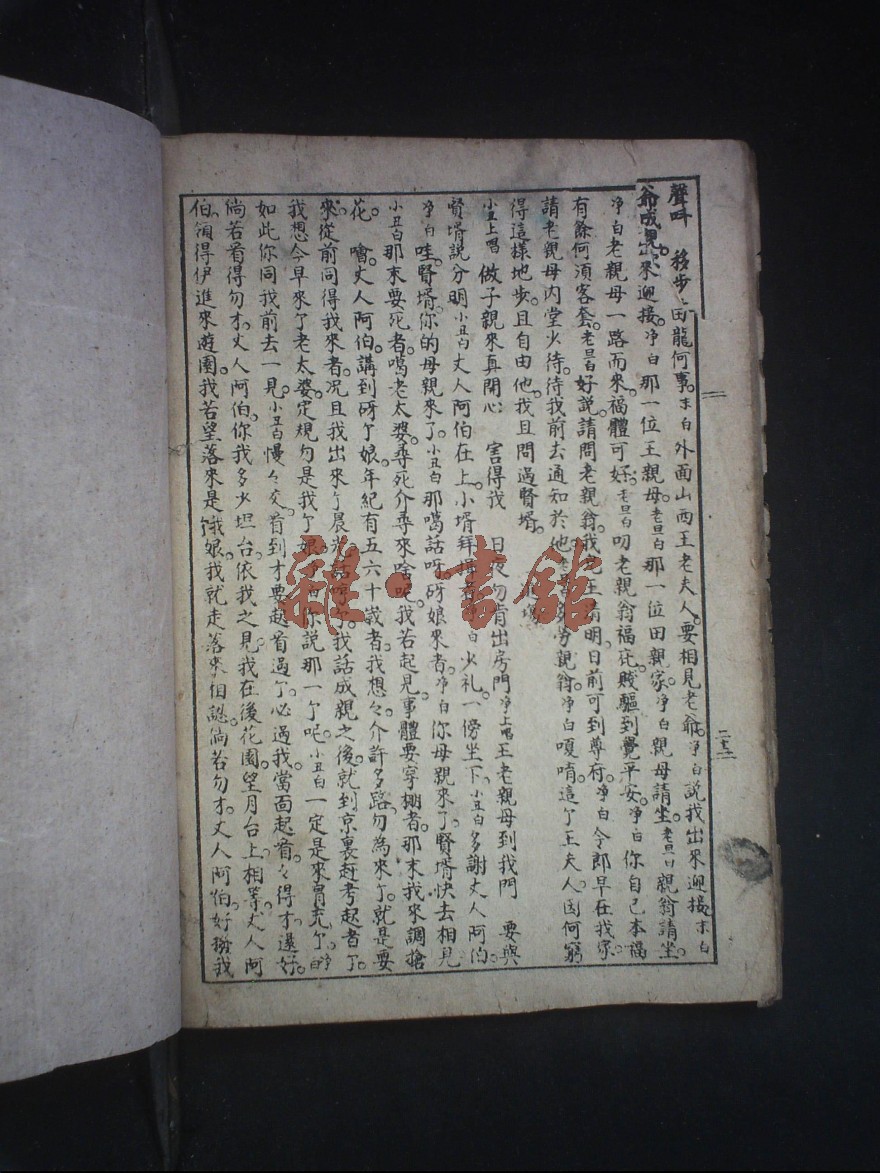 聲呌 移步 田龍何事。末白外面山西王老夫人。要相見老爺。净白說我出來迎接末白
爺 出來迎接。净白那一位王親母。老旦白那一位田親家。净白親母請坐。老旦白親翁請坐。
净白老親母一路而來。福體可好。老旦白叨老親翁福庇。賤驅到覺平安。净白你自己本福
有餘何須客套。老旦白好說。請問老親翁。我 明日前可到尊府。净白令郎早在我家。
請老親母内堂少待。待我前去通知於他。老旦白多勞親翁。净白嗄唷。這个王夫人。因何窮
得這樣地步。且自由他。我且問過賢壻。
小丑上唱 做子親來真開心 害得我 日夜勿肯出房門 净上唱王老親母到我門 要與
賢壻說分明 小丑白丈人阿伯在上。小壻拜揖者。净白少礼。一傍坐下。小丑白多謝丈人阿伯。
净白哇。賢壻。你的母親來了。小丑白那噶話呀。砑娘來者。净白你母親來了。賢壻快去相見
小丑白那末要死者。噶老太婆。尋死介尋來啥呢。我若起見。事體要穿棚者。那末我來調搶
花。噲。丈人阿伯。講到砑个娘。年紀有五六十歲者。我想々介許多路。勿為來个。就是要
來。從前同得我來者。况且我出來个晨光。話哼个。我話成親之後。就到京裏赶考起者个。
我想今早來个老太婆。定規勿是我个娘。净白你說那一个呢。小丑白一定是來冒充个。净白
如此你同我前去一見。小丑白慢々交。看到才要起首過个。必過我當面起看。看得才還好。
倘若看得勿才。丈人阿伯。你我多少坦台。依我之見。我在後花園望月台上相等。丈人阿
伯。領得伊進來遊園。我若望落來。是我个娘。我就走落來相認。倘若勿才。丈人阿伯。好攙我
二十二
雜·書館